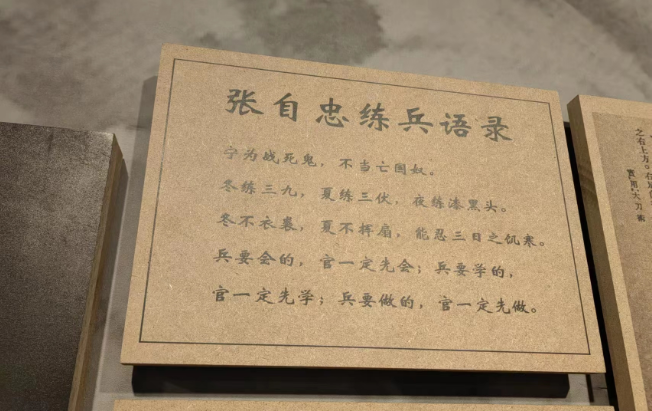 张自忠练兵语录
宁为战死鬼，不当亡国奴。
冬练三九，夏练三伏，夜练漆黑头。
冬不衣裘，夏不挥扇，能忍三日之饥寒。
兵要会的，官一定先会；兵要学的，
官一定先学；兵要做的，官一定先做。
之右上方。右足
實用大刀術